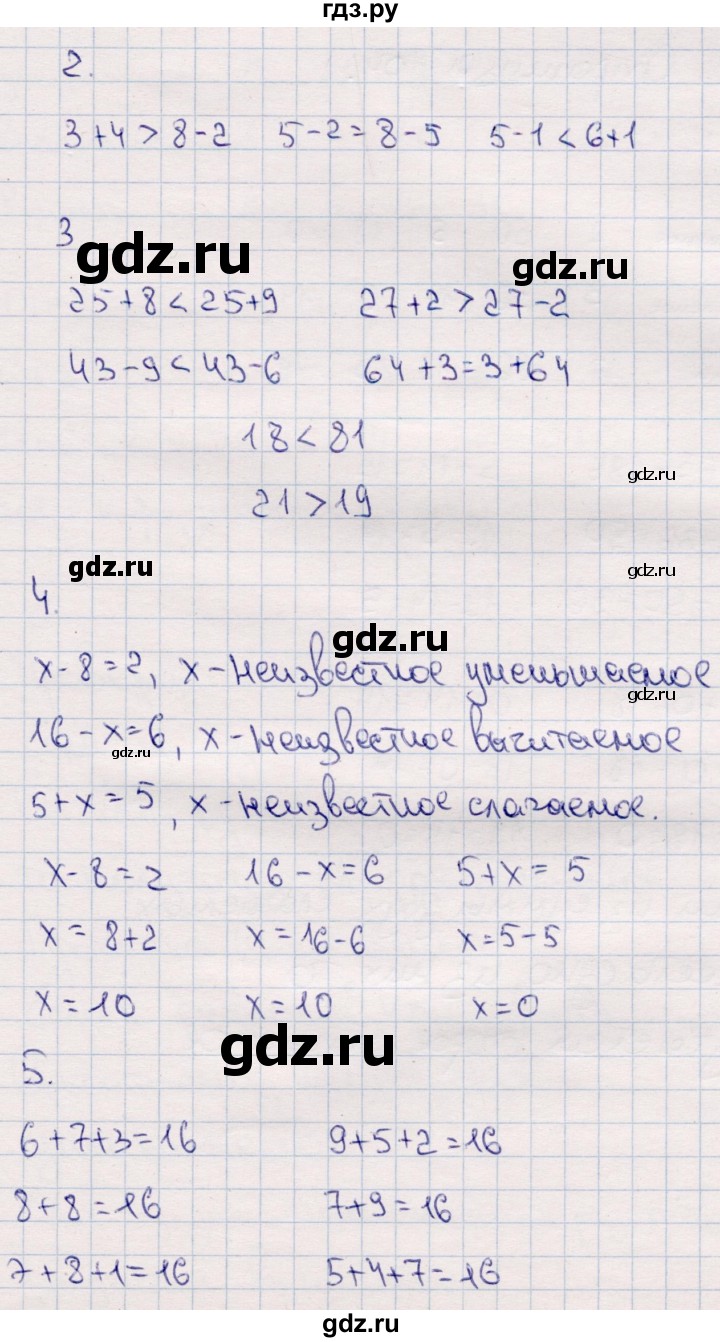 гдз.ру
2.
3+4 > 8-2 5-2=8-5 5-1 < 6+1
3
gdz.ru gdz.ru
25+8 < 25+9 27+2 > 27-2
43-9 < 43-6 64+3=3+64
18 < 81
gdz.ru
21 > 19
gdz.ru gdz.ru
4.
gdz.ru
x-8=2, x-неизвестное уменьшаемое
gdz.ru
16-x=6, x-неизвестное вычитаемое
gdz.ru
5+x=5, x-неизвестное слагаемое.
x-8=2 16-x=6 5+x=5
x=8+2 x=16-6 x=5-5
x=10 x=10 x=0
gdz.ru
5.
6+7+3=16 9+5+2=16
8+8=16 7+9=16
7+8+1=16 5+4+7=16
gdz.ru